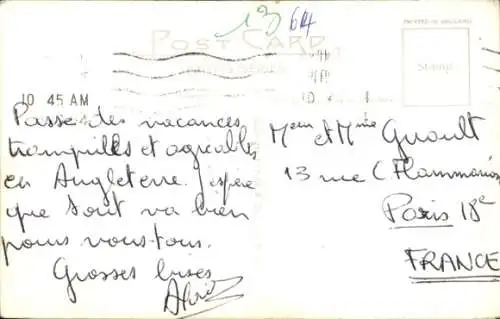 13 64
PRINTED IN ENGLAND
POST CARD
Stamp
10 45 AM
Passe des vacances
tranquilles et agréables
en Angleterre. J'espère
que tout va bien
pour vous tous.
Grosses bises
Meur et Mme Guoult
13 rue C. Flammarion
Paris 18e
FRANCE